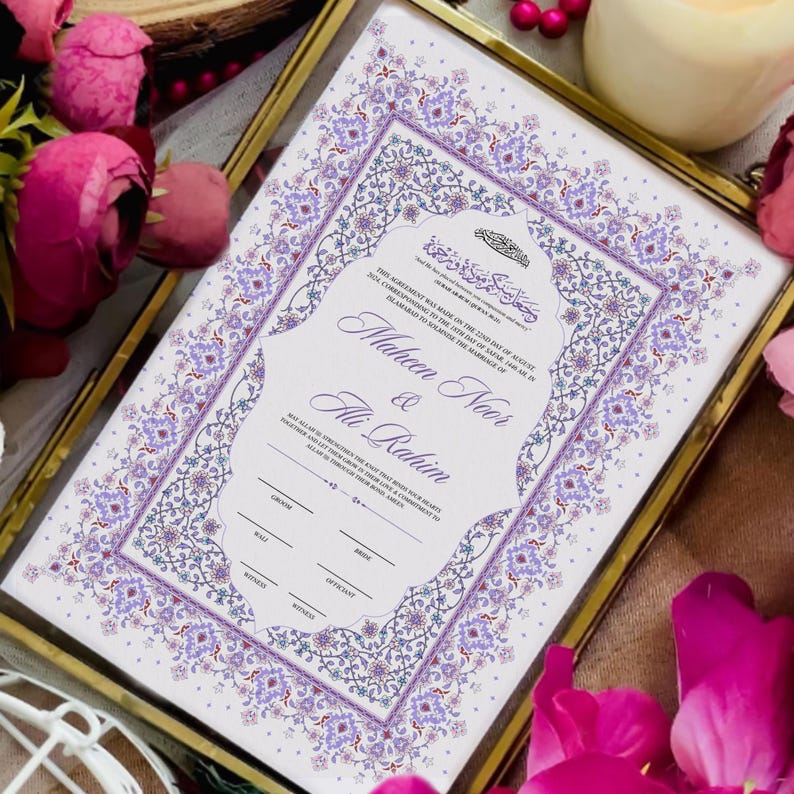 وجعل بينكم مودة ورحمة
"And He has placed between you compassion and mercy"
(SURAH AR-RUM | QURAN 30:21)
THIS AGREEMENT WAS MADE ON THE 22ND DAY OF AUGUST,
2024, CORRESPONDING TO THE 18TH DAY OF SAFAR, 1446 AH, IN
ISLAMABAD TO SOLEMNISE THE MARRIAGE OF
Maheen Noor
&
Ali Rahim
MAY ALLAH ﷻ STRENGTHEN THE KNOT THAT BINDS YOUR HEARTS
TOGETHER AND LET THEM GROW IN THEIR LOVE & COMMITMENT TO
ALLAH ﷻ THROUGH THEIR BOND, AMEEN.
GROOM
BRIDE
WALI
OFFICIANT
WITNESS
WITNESS